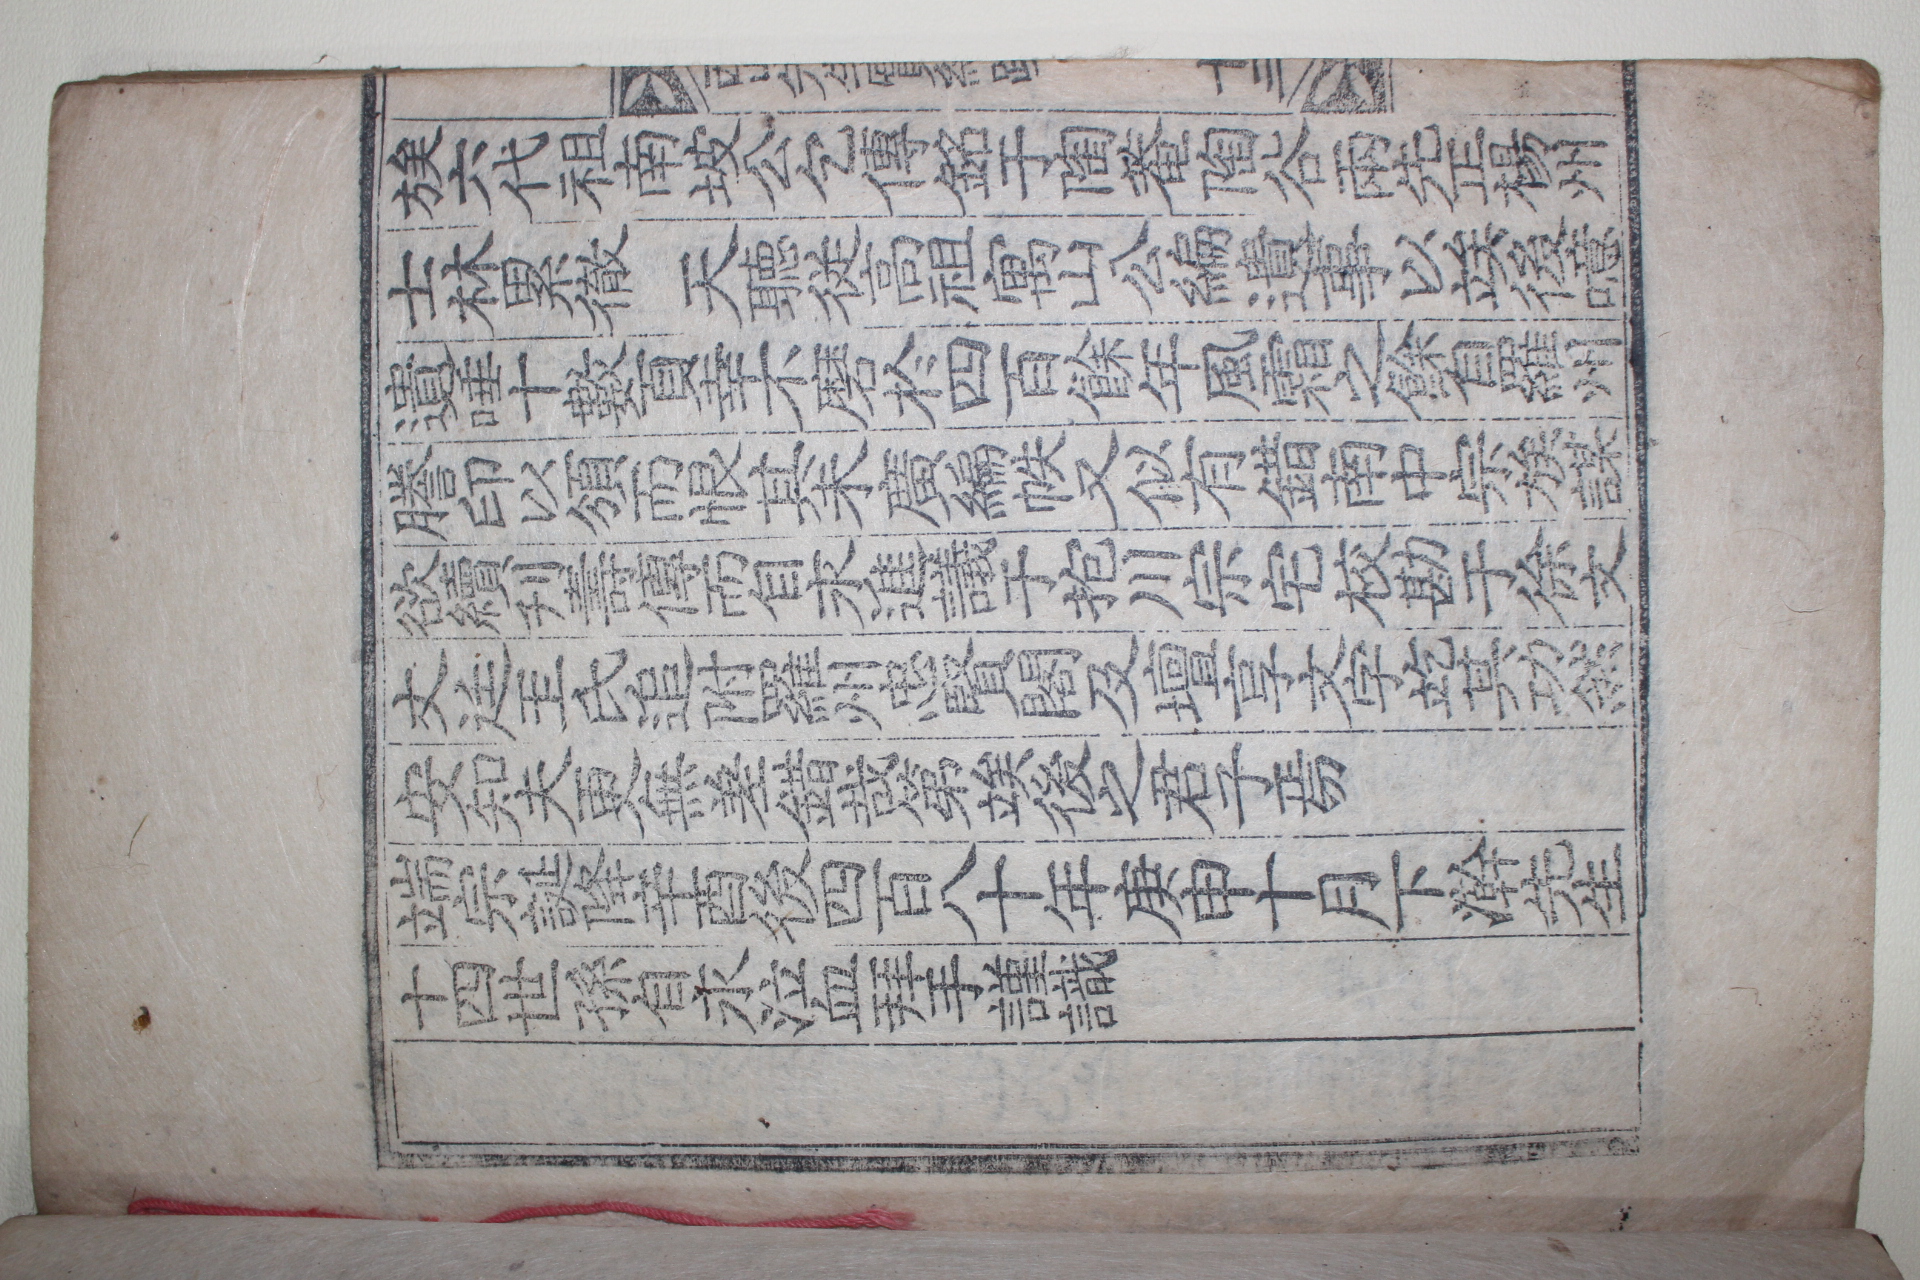 族六代祖南坡公乞傳銘于陶菴陶谷兩先正楊州
士林累徹　天聽從高祖寓山公編遺事以竢後噫
遺唾十數頁幸不磨於四百餘年風霜之餘自羅州
謄印以頒而恨其未廣編帙又似有錯南中宗族謀
欲續刊壽傳而自永進議于抱川宗宅校勘于徐文
文廷王氏追附羅州忠賢閣及壇享文字訖其功然
安知夫更無差錯哉第竢後之君子焉
端宗誕降辛酉後四百八十年庚申十月下澣先生
十四世孫自永泣血拜手謹識
西山先生實紀跋
十三